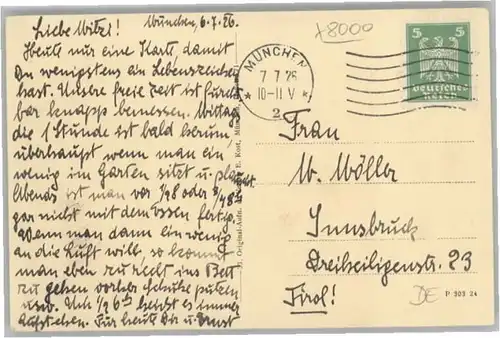 München, 6.7.26.
Liebe Mitzi!
Heute nur eine Karte, damit
Du wenigstens ein Lebenszeichen
hast. Unsere freie Zeit ist furcht
bar knapp bemessen. Mittag
die 1 Stunde ist bald herum,
überhaupt wenn man ein
wenig im Garten sitzt u.
Abends ist man vor 1/48 oder
gar nicht mit dem Essen fertig.
Wenn man dann ein wenig
an die Luft will, so kommt
man eben zu recht ins Bett
zu gehen vorher Schuhe putzen
usw. Um 1/2 6h heißt es immer
Aufstehen. Für heute Dir u. Ernst
Original-Aufn. E. Kost, Mü
+8000
MÜNCHEN
7 7 26
* 10-11 V *
2
5 5
Deutsches
Reich
Frau
M. Möller
Innsbruck
Dreiheiligenstr. 23
Tirol!
DE
P 303 24